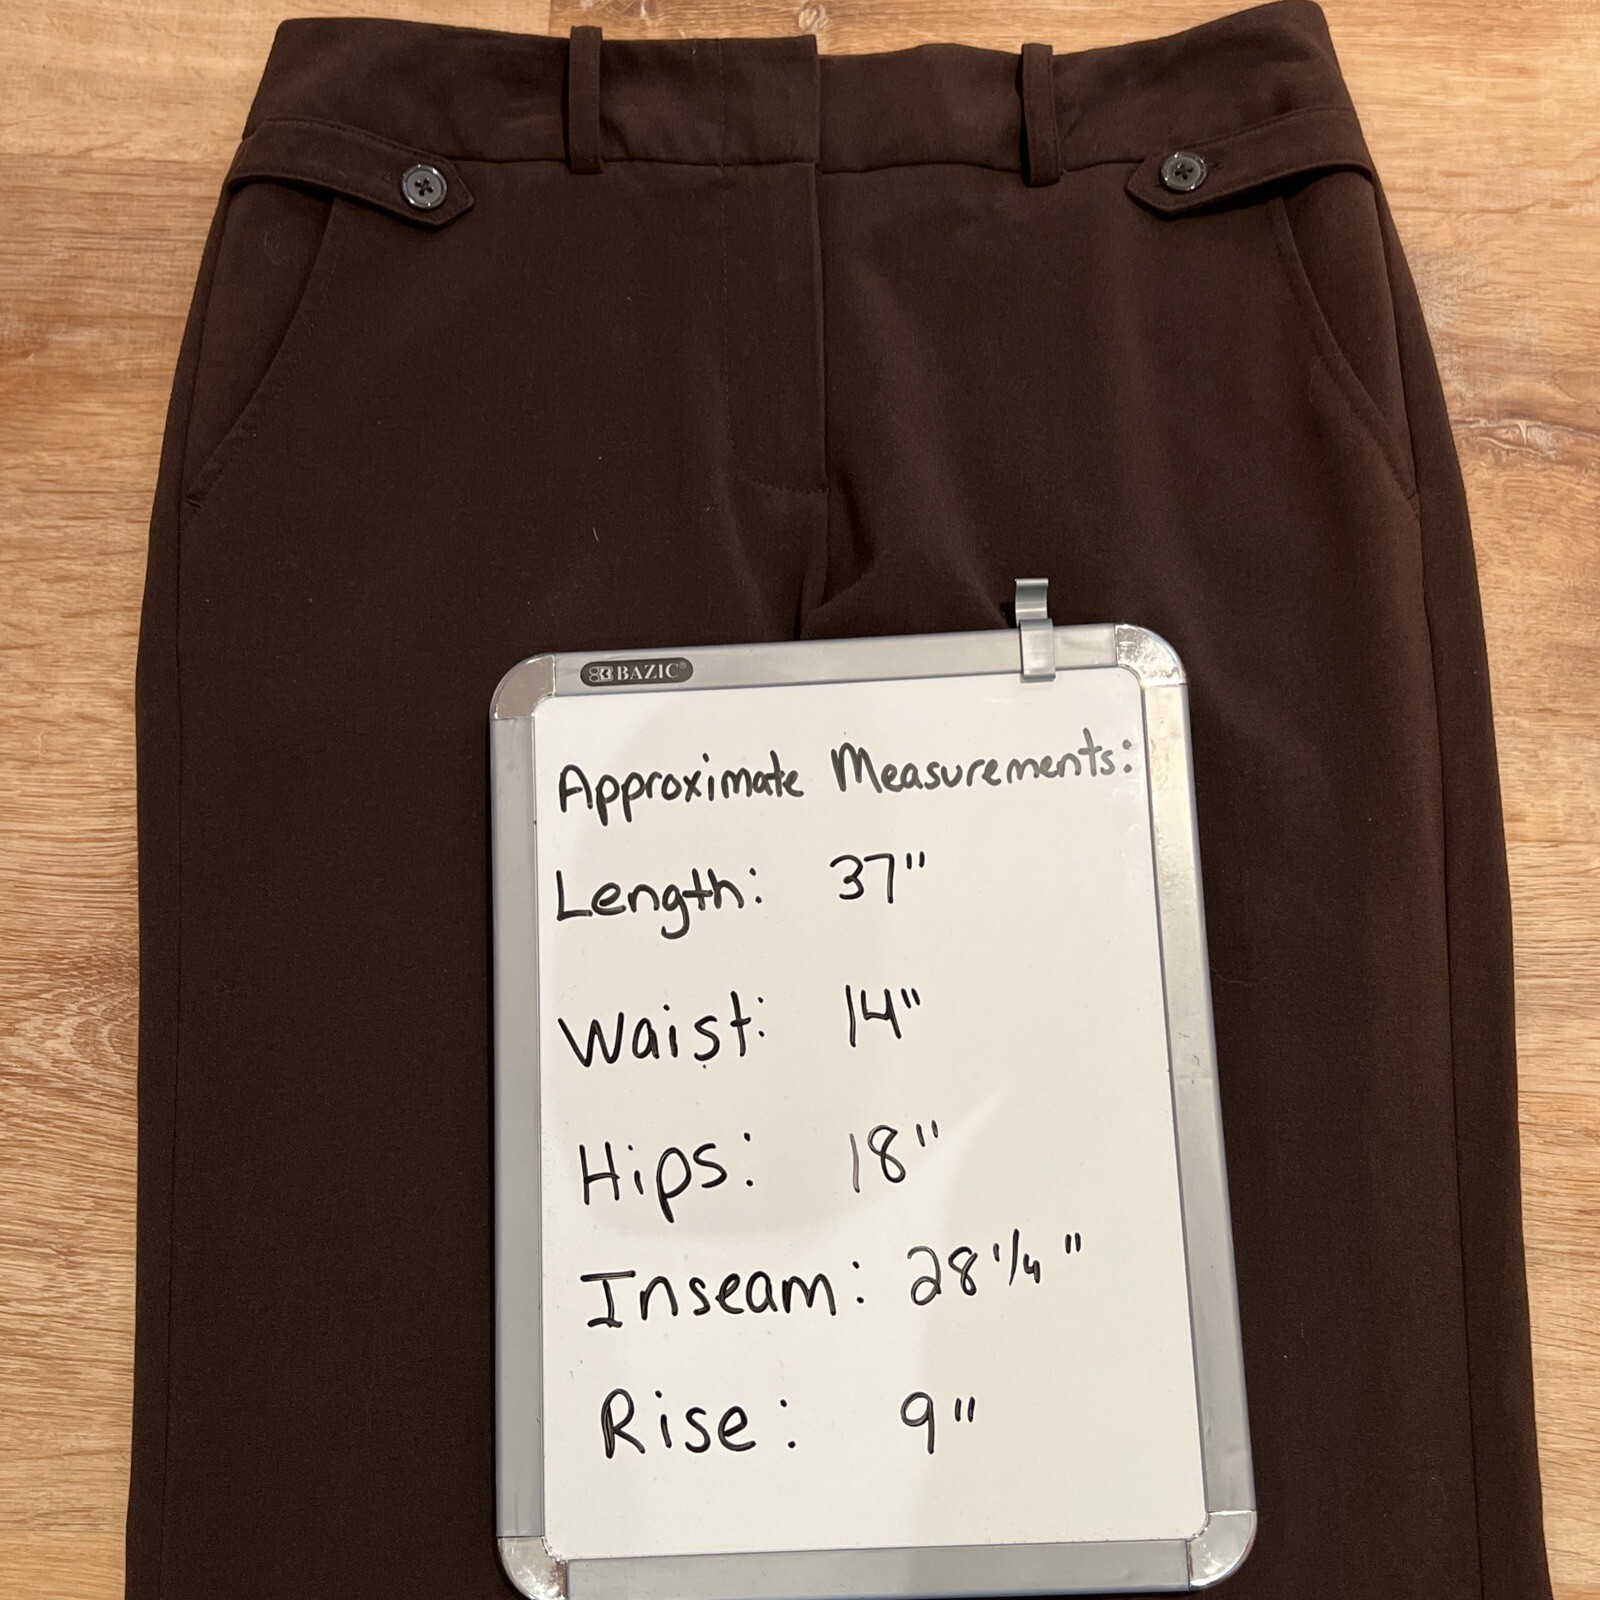 BAZIC®
Approximate Measurements:
Length: 37"
Waist: 14"
Hips: 18"
Inseam: 28 1/4"
Rise: 9"